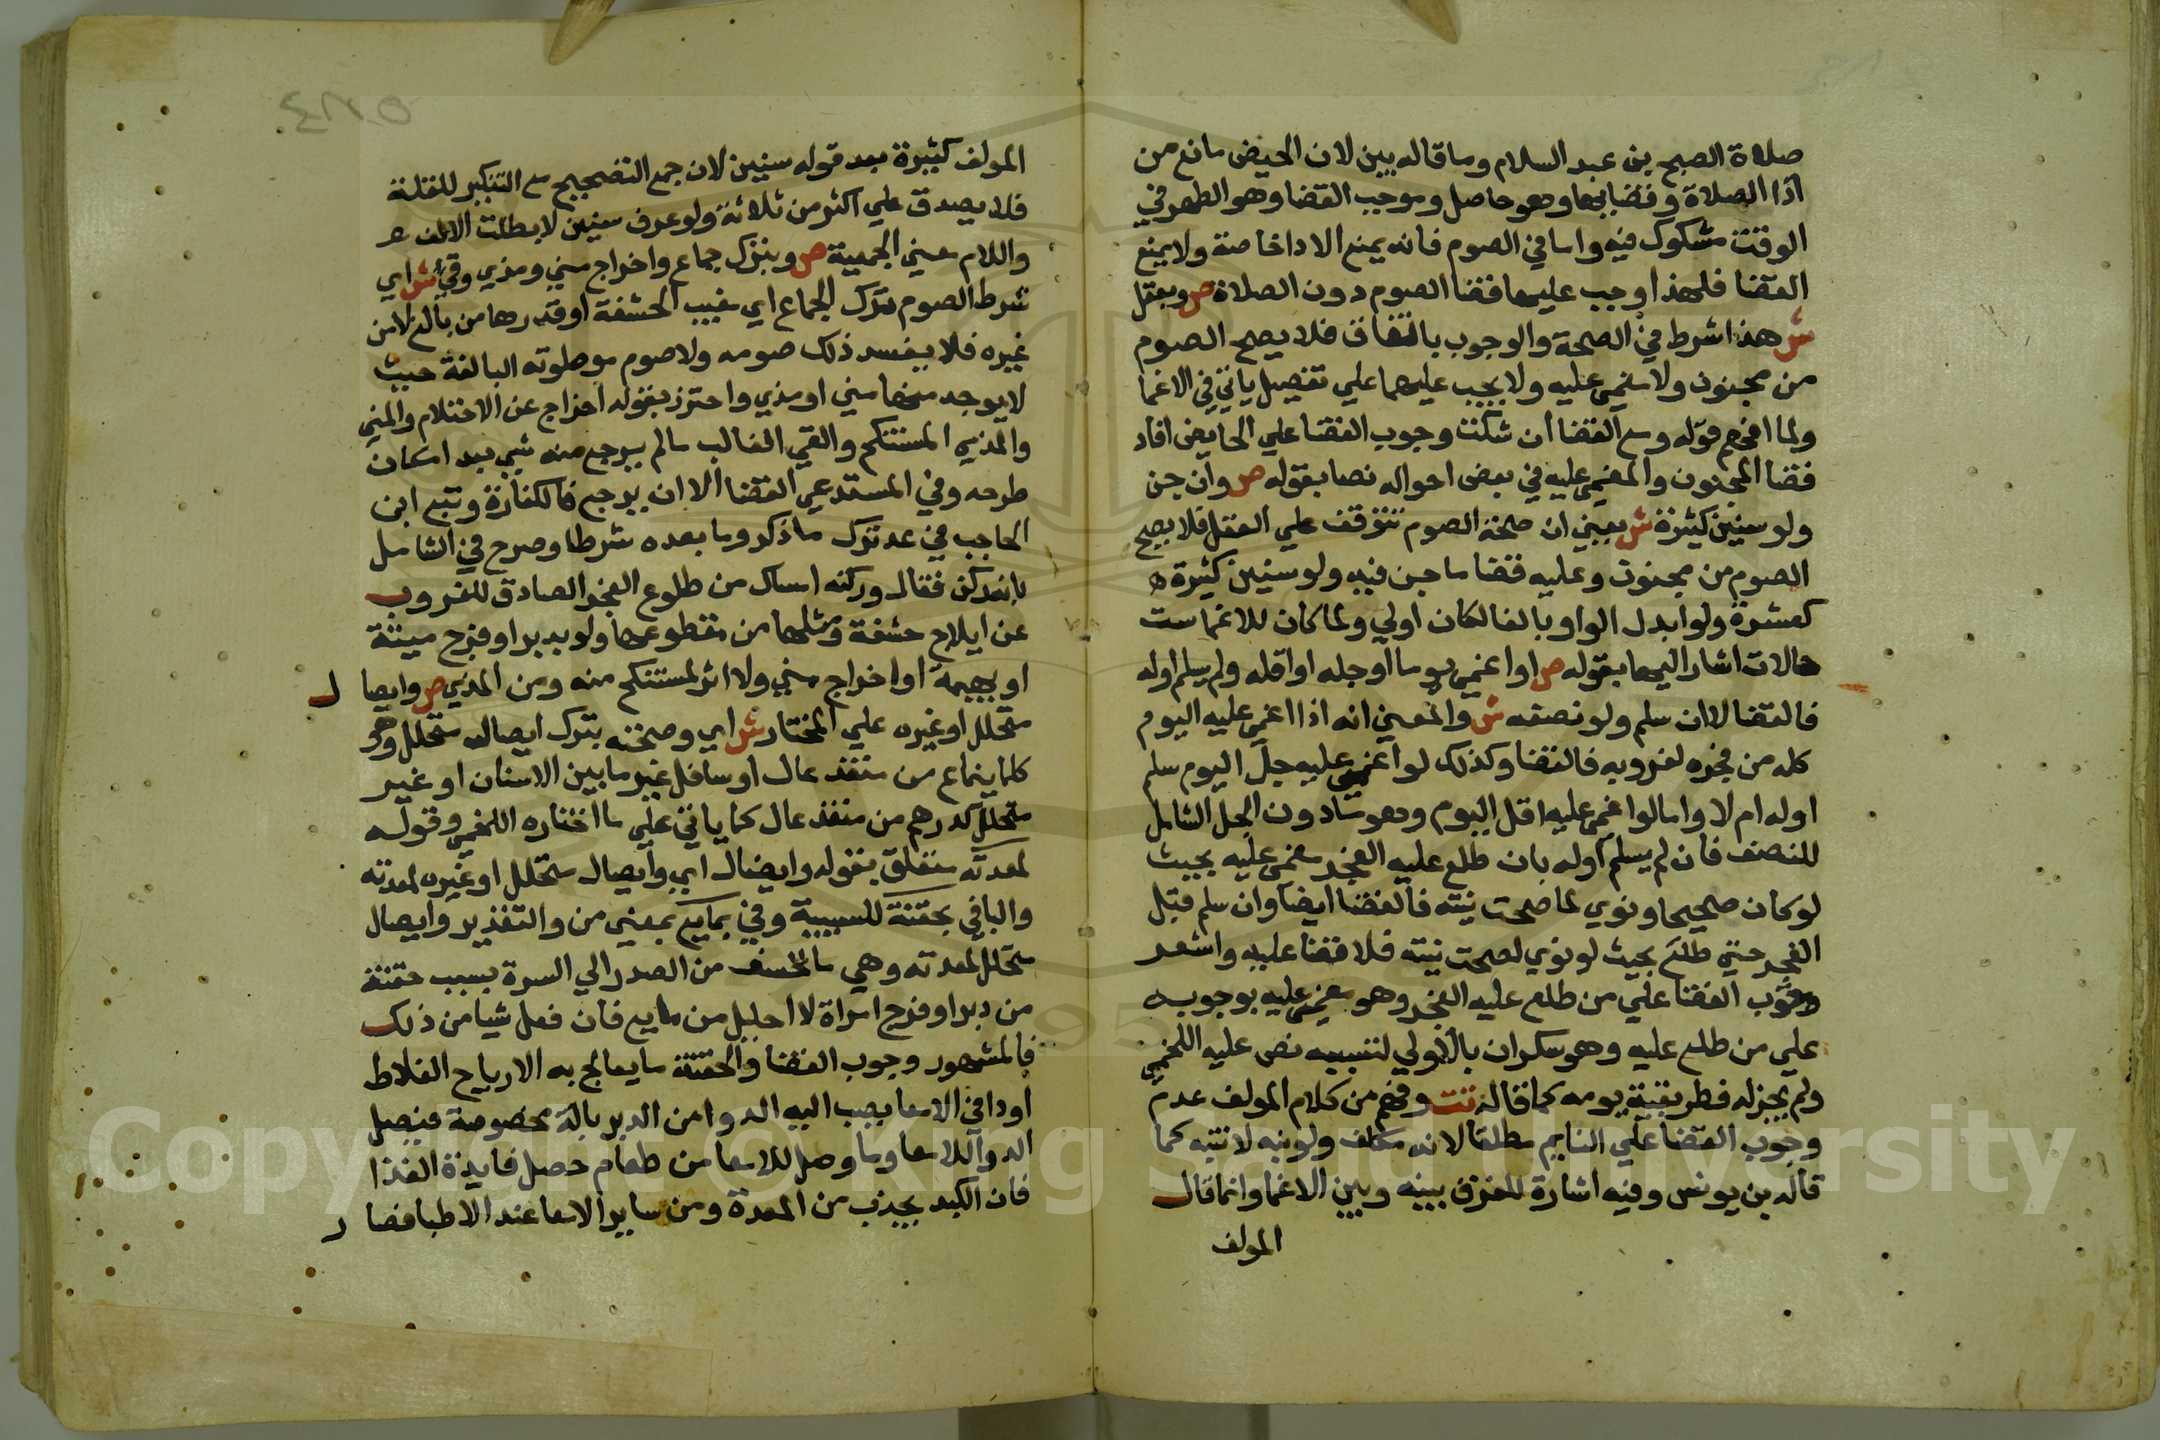 صلاة الصبح بن عبد السلام وما قاله بين لان الحيض مانع من
اذا الصلاة وقضايها وهو حاصل وموجب القضا وهو الطهر في
الوقت مشكوك فيه واما في الصوم فانه يمنع الادا خاصة ولا يمنع
القضا فلهذا وجب عليها قضا الصوم دون الصلاة ص وبعقل
ش هذا شرط في الصحة والوجوب باتفاق فلا يصح الصوم
من مجنون ولا مغمي عليه ولا يجب عليهما علي تفصيل ياتي في الاغما
ولما افهم قوله ومع القضا ان شكت وجوب القضا علي الحايض افاد
قضا المجنون والمغمي عليه في بعض احواله نصا بقوله ص وان جن
ولو سنين كثيرة ش يعني ان صحة الصوم تتوقف علي العقل فلا يصح
الصوم من مجنون وعليه قضا ما جن فيه ولو سنين كثيرة
كعشرة ولو ابدل الواو بالفا لكان اولي ولما كان للاغما ست
حالات اشار اليها بقوله ص او اغمي يوما او جله او اقله ولم يسلم اوله
فالقضا لا ان سلم ولو نصفه ش والمعني انه اذا اغمي عليه اليوم
كله من فجره لغروبه فالقضا وكذلك لو اغمي عليه جل اليوم سلم
اوله ام لا واما لو اغمي عليه اقل اليوم وهو ما دون الجل الشامل
للنصف فان لم يسلم اوله بان طلع عليه الفجر مغمي عليه بحيث
لو كان صحيحا ونوي لما صحت نيته فالقضا ايضا وان سلم قبل
الفجر حتي طلع بحيث لو نوي لصحت نيته فلا قضا عليه واشعر
وجوب القضا علي من طلع عليه الفجر وهو مغمي عليه بوجوبه
علي من طلع عليه وهو سكران بالاولي لتسببه نص عليه اللخمي
ولم يجز له فطر بقية يومه كما قاله تت وفهم من كلام المولف عدم
وجوب القضا علي النايم مطلقا لانه مكلف ولو نبه لانتبه كما
قاله بن يونس وفيه اشارة للفرق بينه وبين الاغما وانما قال
المولف
المولف كثيرة بعد قوله سنين لان جمع التصحيح مع التنكير للقلة
فلا يصدق علي اكثر من ثلاثة ولو عرف سنين لابطلت الالف
واللام معني الجمعية ص وبترك جماع واخراج مني ومذي وقي ش اي
شرط الصوم ترك الجماع اي مغيب الحشفة او قدرها من بالغ لا من
غيره فلا يفسد ذلك صومه ولا صوم موطوته البالغة حيث
لا يوجد منها مني او مذي واحترز بقوله اخراج عن الاحتلام والمني
والمذي المستنكح والقي الغالب ما لم يرجع منه شي بعد امكان
طرحه وفي المستدعي القضا الا ان يرجع فالكفارة وتبع ابن
الحاجب في عد ترك ما ذكر وما بعده شرطا وصرح في الشامل
بانه ركن فقال وركنه امساك من طلوع الفجر الصادق للغروب
عن ايلاج حشفة ومثلها من مقطوعها ولو بدبر او فرج ميتة
او بهيمة او اخراج مني ولا اثر لمستنكح منه ومن المذي ص وايصا ل
متحلل او غيره علي المختار ش اي وصحته بترك ايصال متحلل وهو
كلما ينماع من منفذ عال او سافل غير ما بين الاسنان او غير
متحلل كدرهم من منفذ عال كما ياتي علي ما اختاره اللخمي وقوله
لمعدته متعلق بقوله وايصال اي وايصال متحلل او غيره لمعدته
والبا في بحقنة للسببية وفي بمايع بمعني من والتقدير وايصال
متحلل لمعدته وهي ما انخسف من الصدر الي السرة بسبب حقنة
من دبر او فرج امراة لا احليل من مايع فان فعل شيا من ذلك
فالمشهور وجوب القضا والحقنة ما يعالج به الارياح الغلاظ
او دا في الامعا يصب اليه الدوا من الدبر بالة مخصوصة فيصل
الدوا للامعا وما وصل للامعا من طعام حصل فايدة الغذا
فان الكبد يجذب من المعدة ومن ساير الامعا عند الاطبا فصا ر